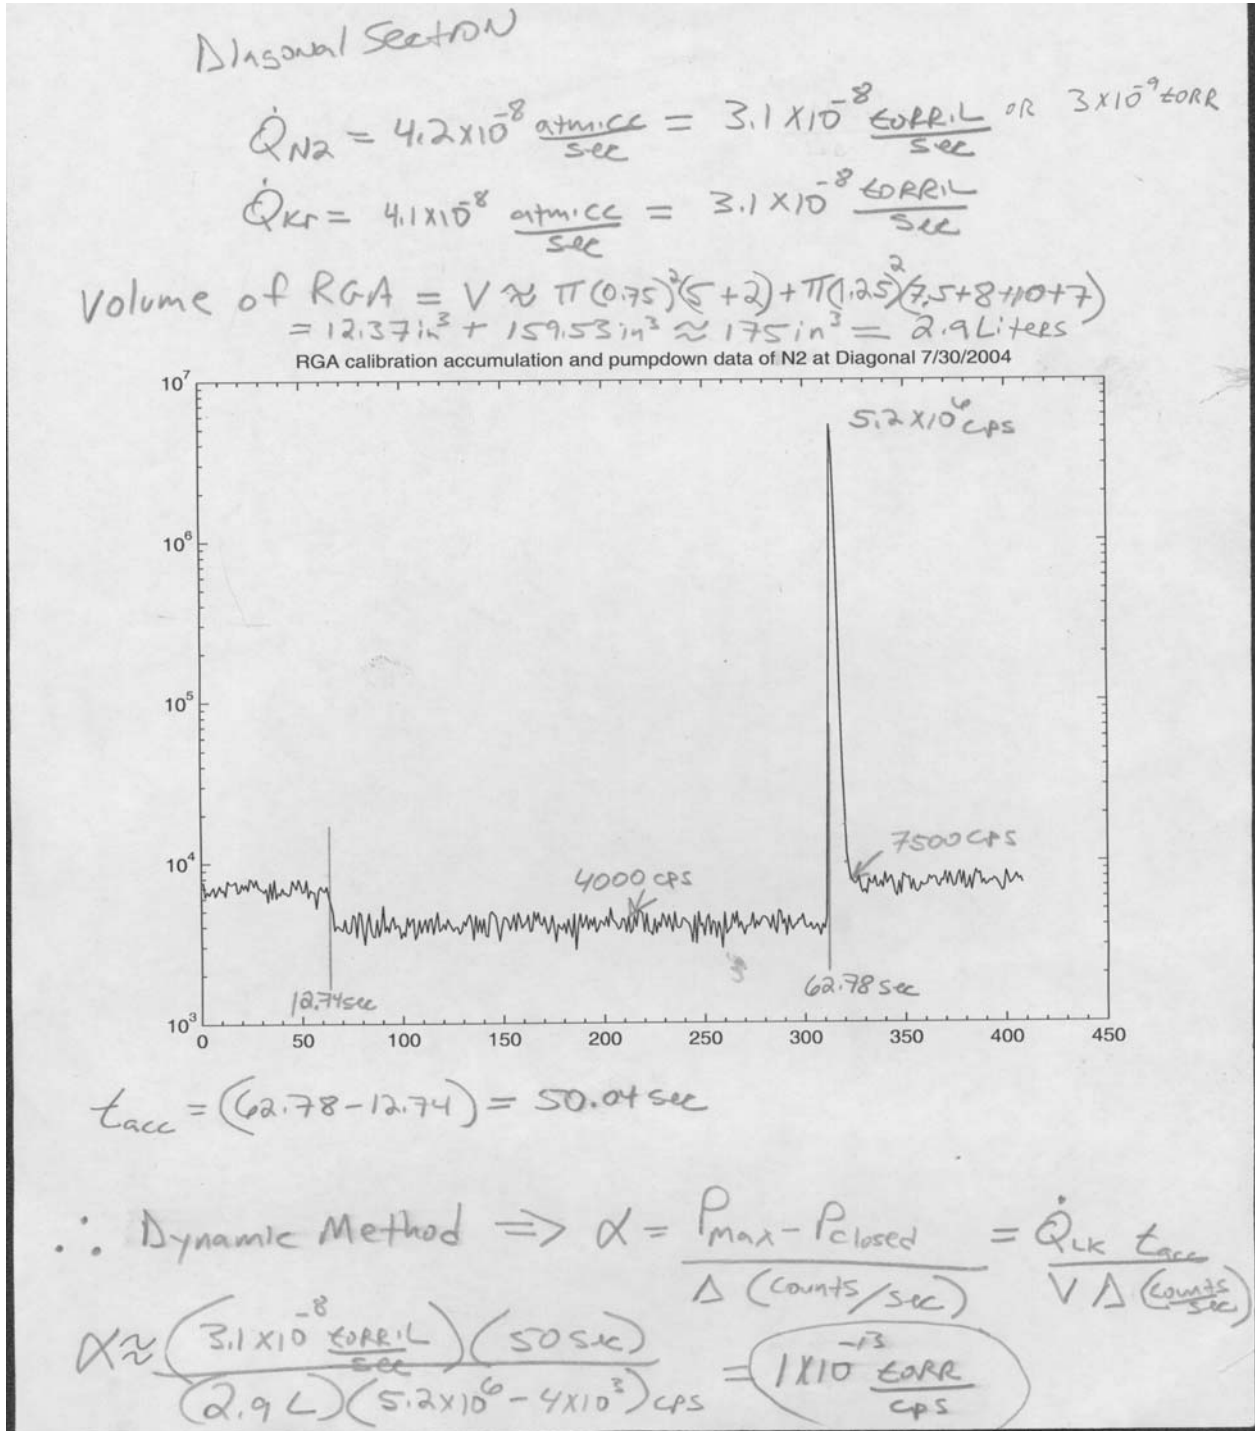 Diagonal Section
Q̇N2 = 4.2x10⁻⁸ atm·cc/sec = 3.1x10⁻⁸ torr·L/sec or 3x10⁻⁹ torr
Q̇Kr = 4.1x10⁻⁸ atm·cc/sec = 3.1x10⁻⁸ torr·L/sec
Volume of RGA = V ≈ π(0.75)²(5+2)+π(1.25)²(7.5+8+10+7)
= 12.37in³ + 159.53in³ ≈ 175in³ = 2.9 Liters
RGA calibration accumulation and pumpdown data of N2 at Diagonal 7/30/2004
10⁷
5.2x10⁶ cps
10⁶
10⁵
10⁴
4000 cps
7500 cps
12.74sec
62.78 sec
10³
0 50 100 150 200 250 300 350 400 450
tacc = (62.78-12.74) = 50.04 sec
∴ Dynamic Method => α = Pmax - Pclosed / Δ (counts/sec) = Q̇LK tacc / V Δ (counts/sec)
α ≈ (3.1x10⁻⁸ torr·L/sec)(50 sec) / (2.9 L)(5.2x10⁶ - 4x10³)cps = 1x10⁻¹³ torr/cps